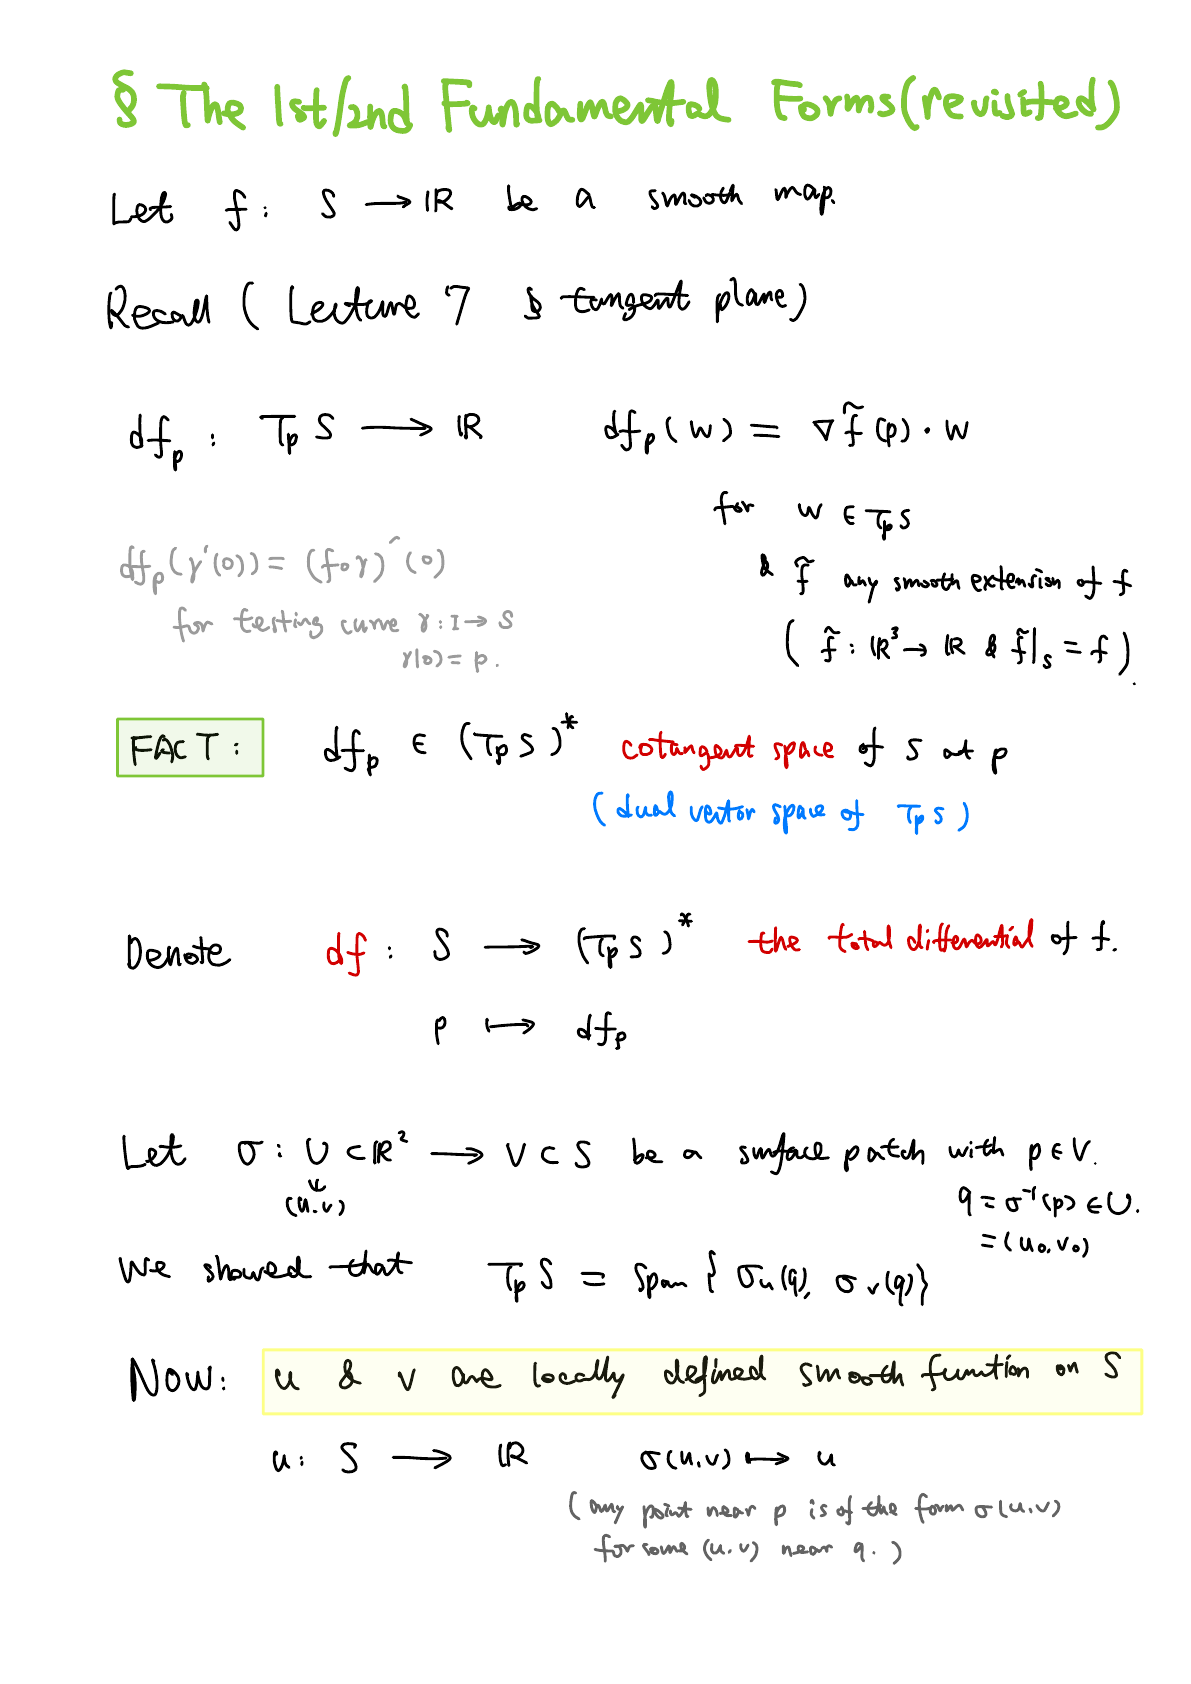 § The 1st/2nd Fundamental Forms (revisited)
Let f : S → ℝ be a smooth map.
Recall ( Lecture 7 § tangent plane )
df_p : T_pS → ℝ df_p(w) = ∇f̃(p)·w
for w ∈ T_pS
& f̃ any smooth extension of f
( f̃ : ℝ³ → ℝ & f̃|_S = f ).
df_p(γ'(0)) = (f∘γ)'(0)
for testing curve γ : I → S
γ(0) = p.
FACT : df_p ∈ (T_pS)* cotangent space of S at p
( dual vector space of T_pS )
Denote df : S → (T_pS)* the total differential of f.
p ↦ df_p
Let σ : U ⊂ ℝ² → V ⊂ S be a surface patch with p ∈ V.
(u.v) q = σ⁻¹(p) ∈ U.
= (u₀,v₀)
We showed that T_pS = Span { σ_u(q), σ_v(q) }
Now: u & v are locally defined smooth funtion on S
u: S → ℝ σ(u.v) ↦ u
( any point near p is of the form σ(u.v)
for some (u.v) near q. )